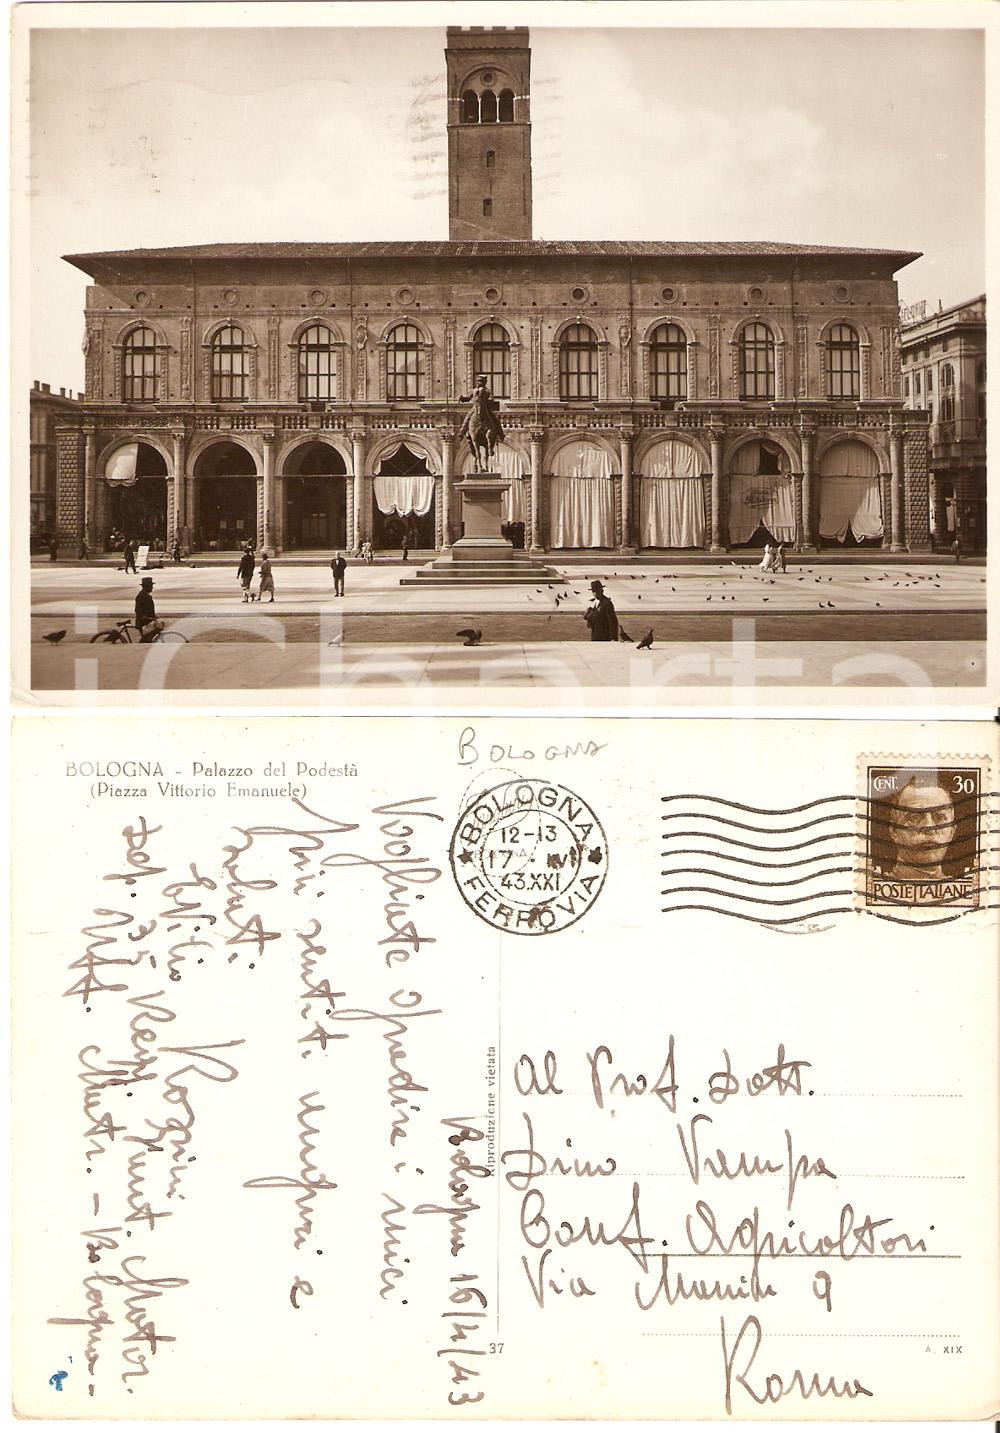 iCharta
BOLOGNA - Palazzo del Podestà
(Piazza Vittorio Emanuele)
BOLOGNA
BOLOGNA
12-13
17 · IV
43.XXI
FERROVIA
CENT. 30
POSTE ITALIANE
Bologna 16/4/43
Vogliate gradire i miei
più sentiti auguri e
saluti.
Rossini
dep. 35 Regg. Fant. Motor.
Uff. Matr. - Bologna -
Riproduzione vietata
37
Al Prof. Dott.
Dino Vampa
Conf. Agricoltori
Via Manin 9
Roma
A. XIX